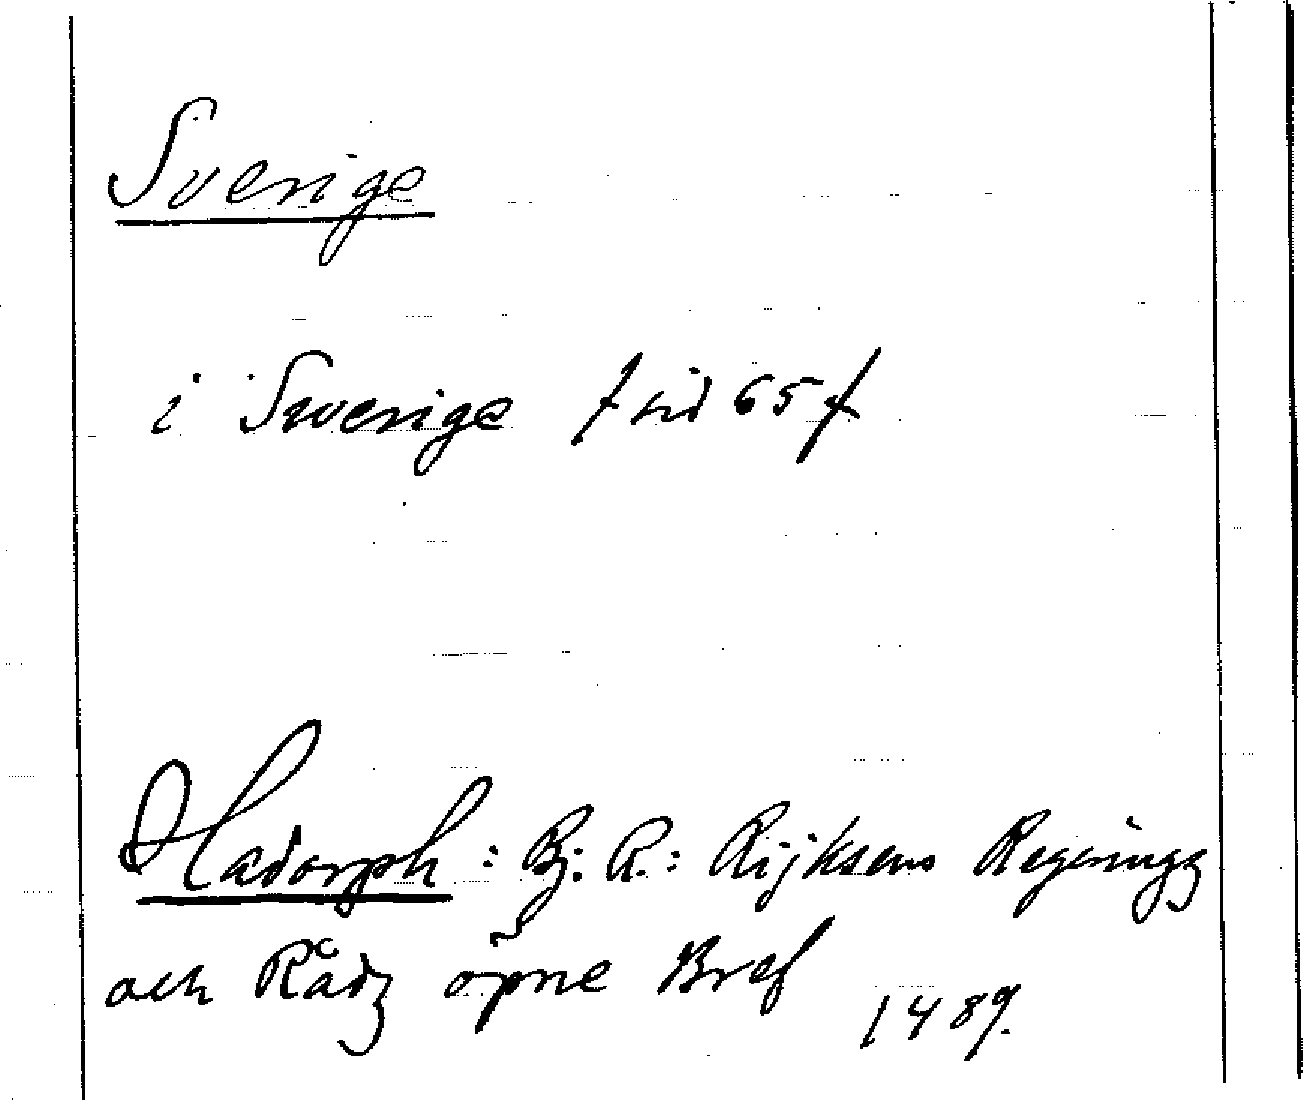 Sverige
i Swerige f sid 65 f
Hadorph : Bj. R.: Rijksens Regeringz
och Rådz öpne Bref 1489.